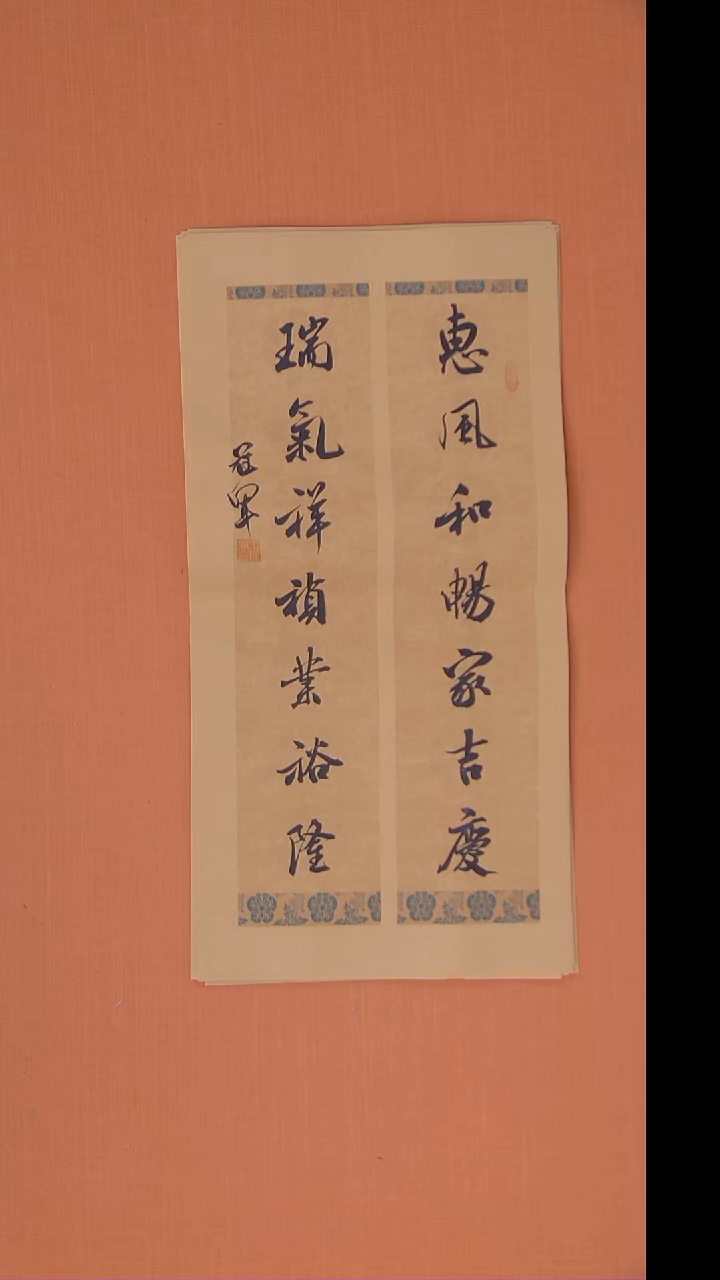 惠風和暢家吉慶
瑞氣祥禎業裕隆